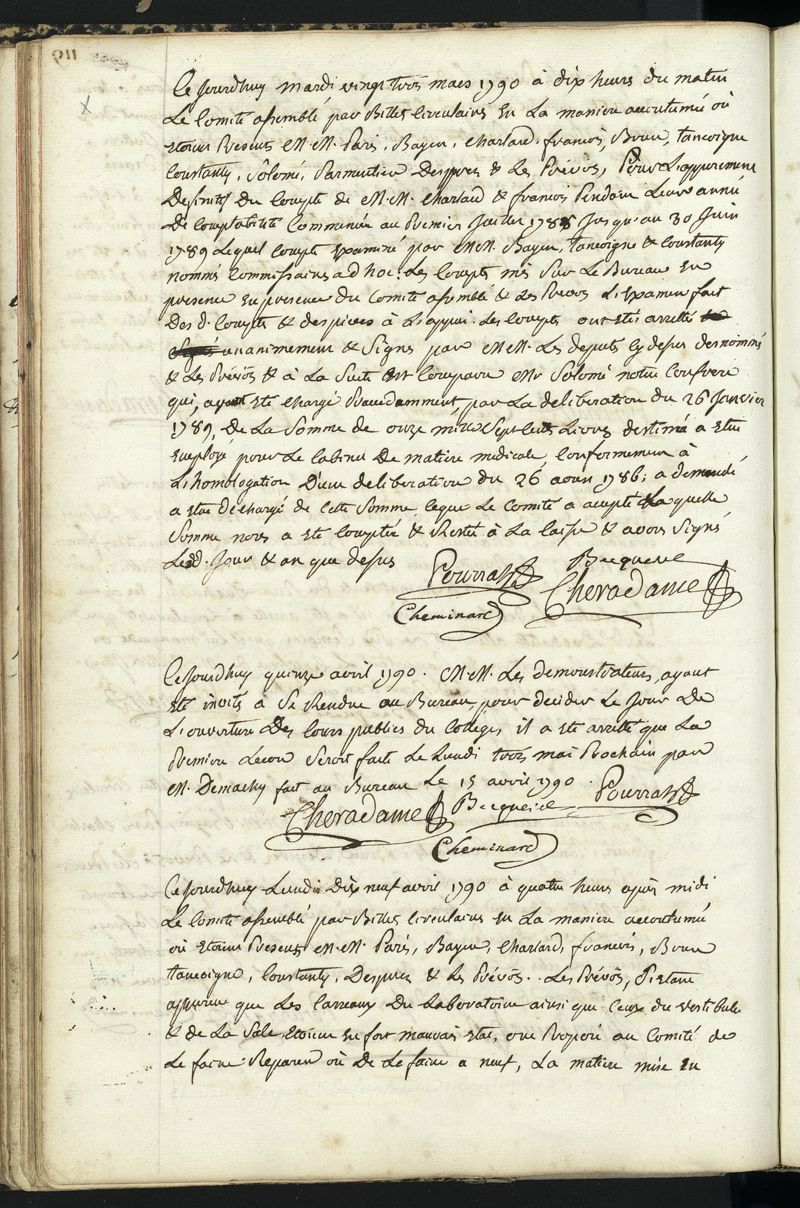 Ce Jourdhuy mardi vingt trois mars 1790 à dix heures du matin
Le Comité assemblé par Billets Circulaires En La maniere accoutumée où
Etoient Presents M.M. Paris, Bayen, Charlard, francois, Brun, tancoigne
Constanty, Sôlomé, Parmentier Despres & Les Prévôs, Pour L'appurement
Definitif Du Compte de M.M. Charlard & francois Pendant Leur année
De Comptabilité Commencée au Premier Juillet 1788 Jusqu'au 30 Juin
1789 Lequel Compte Examiné par M.M. Bayen, tancoigne & Constanty
nommés Commissaires ad hoc; Les Comptes mis Sur Le Bureau En
presence En presence Du Comité assemblé & Les Prevos L'Examen fait
Des d. Comptes & des pieces à L'appui. Les Comptes ont Etés arretté
unanimement & Signés par M.M. Les deputés Cy dessus denommés
& Les Prévôs & à La Suite Est Comparu Mr Solomé notre Confrere
qui, ayant Eté Chargé Precedamment, par La deliberation du 26 Janvier
1789, de La Somme de onze mille Sept Cents Livres destinée a Etre
Employé pour Le Cabinet De matiere medicale, Conformement à
L'homologation D'une deliberation du 26 aoust 1786; a demandé
a Etre déchargé de Cette Somme, Ceque Le Comité a accepté Laquelle
Somme nous a Eté Comptée & Restée à La Caisse & avons Signés
Lesd. Jour & an que dessus
Pourrat Bacqueire
Cheminard Cheradame
Ce Jourdhuy quinze avril 1790. M.M. Les demonstrateurs, ayant
Eté invités à Se Rendre au Bureau, pour decider Le Jour De
L'ouverture Des Cours publics du College, il a Eté arretté que La
Premiere Lecon Seroit faite Le Lundi trois mai Prochain par
M. Demachy fait au Bureau Le 15 avril 1790.
Cheradame Bacqueire Pourrat
Cheminard
Ce Jourdhuy Lundi Dix neuf avril 1790 à quatre heures après midi
Le Comité assemblé par Billets Circulaires En La maniere accoutumée
où Etoient Presents M.M. Paris, Bayen, Charlard, francois, Brun
tancoigne, Constanty, Desprez & Les Prévôs. Les Prévôs, S'etant
apperçue que Les Carreaux Du Laboratoire ainsi que Ceux du vestibule
& de La Sale Etoient En fort mauvais Etat, ont Proposé au Comité de
Le faire Reparer où De Le faire a neuf, La matiere mise En